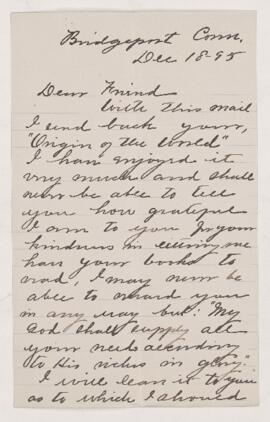 Bridgeport Conn.
Dec 18-95
Dear Friend
With this mail
I send back your,
"Origin of the World"
I have enjoyed it
very much and shall
never be able to tell
you how grateful
I am to you for your
kindness in letting me
have your books to
read, I may never be
able to reward you
in any way but: "My
God shall supply all
your need according
to His riches in glory."
I will leave it to you
as to which I should